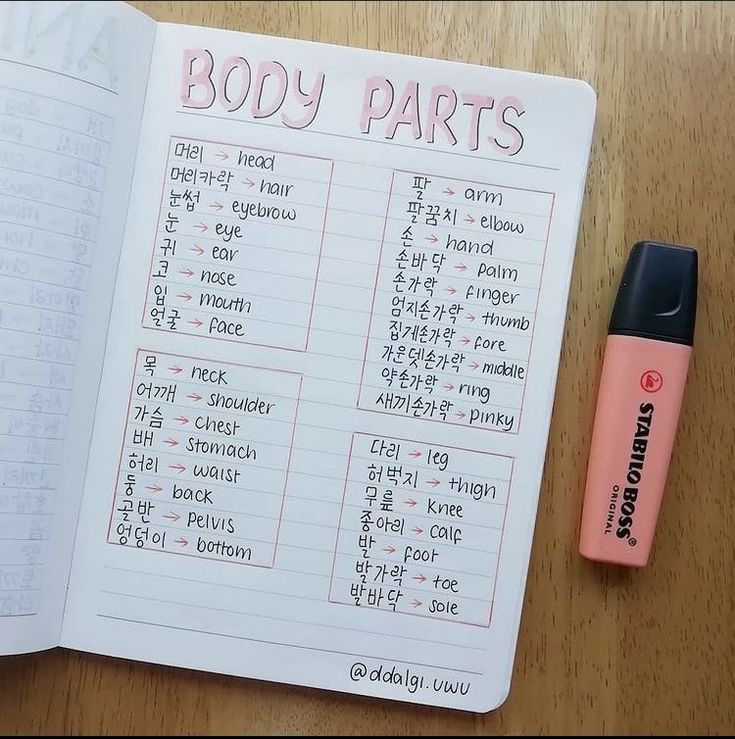 BODY PARTS
머리 → head
머리카락 → hair
눈썹 → eyebrow
눈 → eye
귀 → ear
코 → nose
입 → mouth
얼굴 → face
목 → neck
어깨 → shoulder
가슴 → chest
배 → stomach
허리 → waist
둥 → back
골반 → pelvis
엉덩이 → bottom
팔 → arm
팔꿈치 → elbow
손 → hand
손바닥 → palm
손가락 → finger
엄지손가락 → thumb
집게손가락 → fore
가운뎃손가락 → middle
약손가락 → ring
새끼손가락 → pinky
다리 → leg
허벅지 → thigh
무릎 → knee
종아리 → calf
발 → foot
발가락 → toe
발바닥 → sole
@ddalgi.uwu
STABILO BOSS®
ORIGINAL